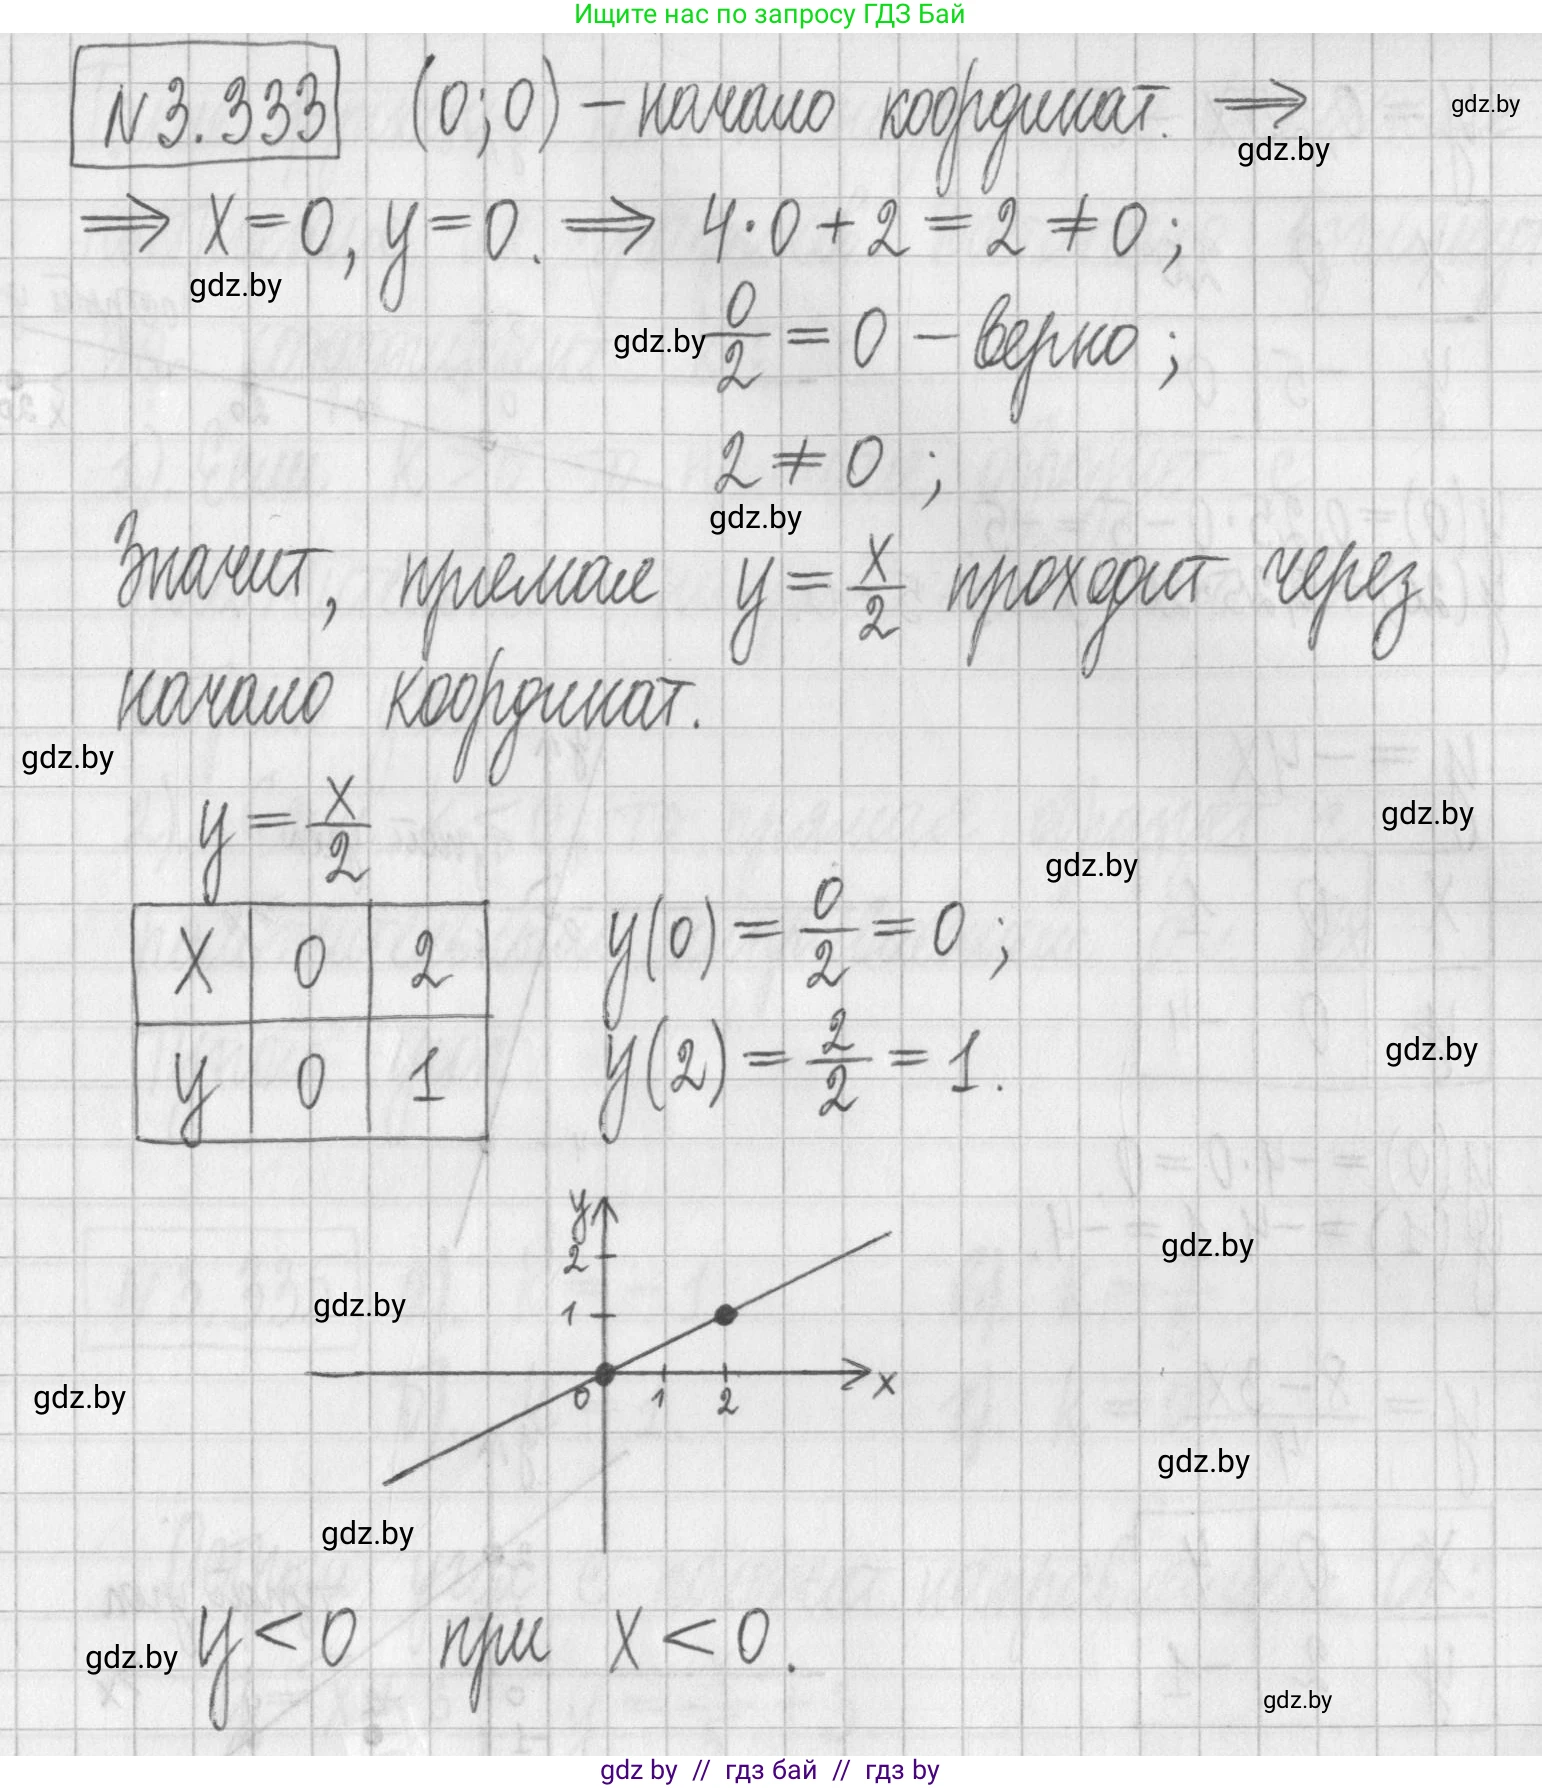 Ищите нас по запросу ГДЗ Бай
N 3.333 (0;0) – начало координат. ⟹
gdz.by
gdz.by
⟹ x = 0, y = 0. ⟹ 4·0 + 2 = 2 ≠ 0 ;
gdz.by
gdz.by
0/2 = 0 – верно ;
2 ≠ 0 ;
gdz.by
Значит, прямая y = x/2 проходит через
начало координат.
gdz.by
y = x/2
gdz.by
gdz.by
x 0 2
y(0) = 0/2 = 0 ;
y 0 1
y(2) = 2/2 = 1.
gdz.by
y
2
gdz.by
gdz.by
1
gdz.by
0 1 2 x
gdz.by
gdz.by
gdz.by
y < 0 при x < 0.
gdz.by
gdz.by
gdz by // гдз бай // гдз by